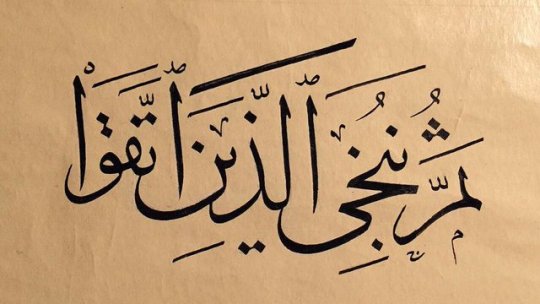 ثُمَّ نُنَجِّى ٱلَّذِينَ ٱتَّقَوْا